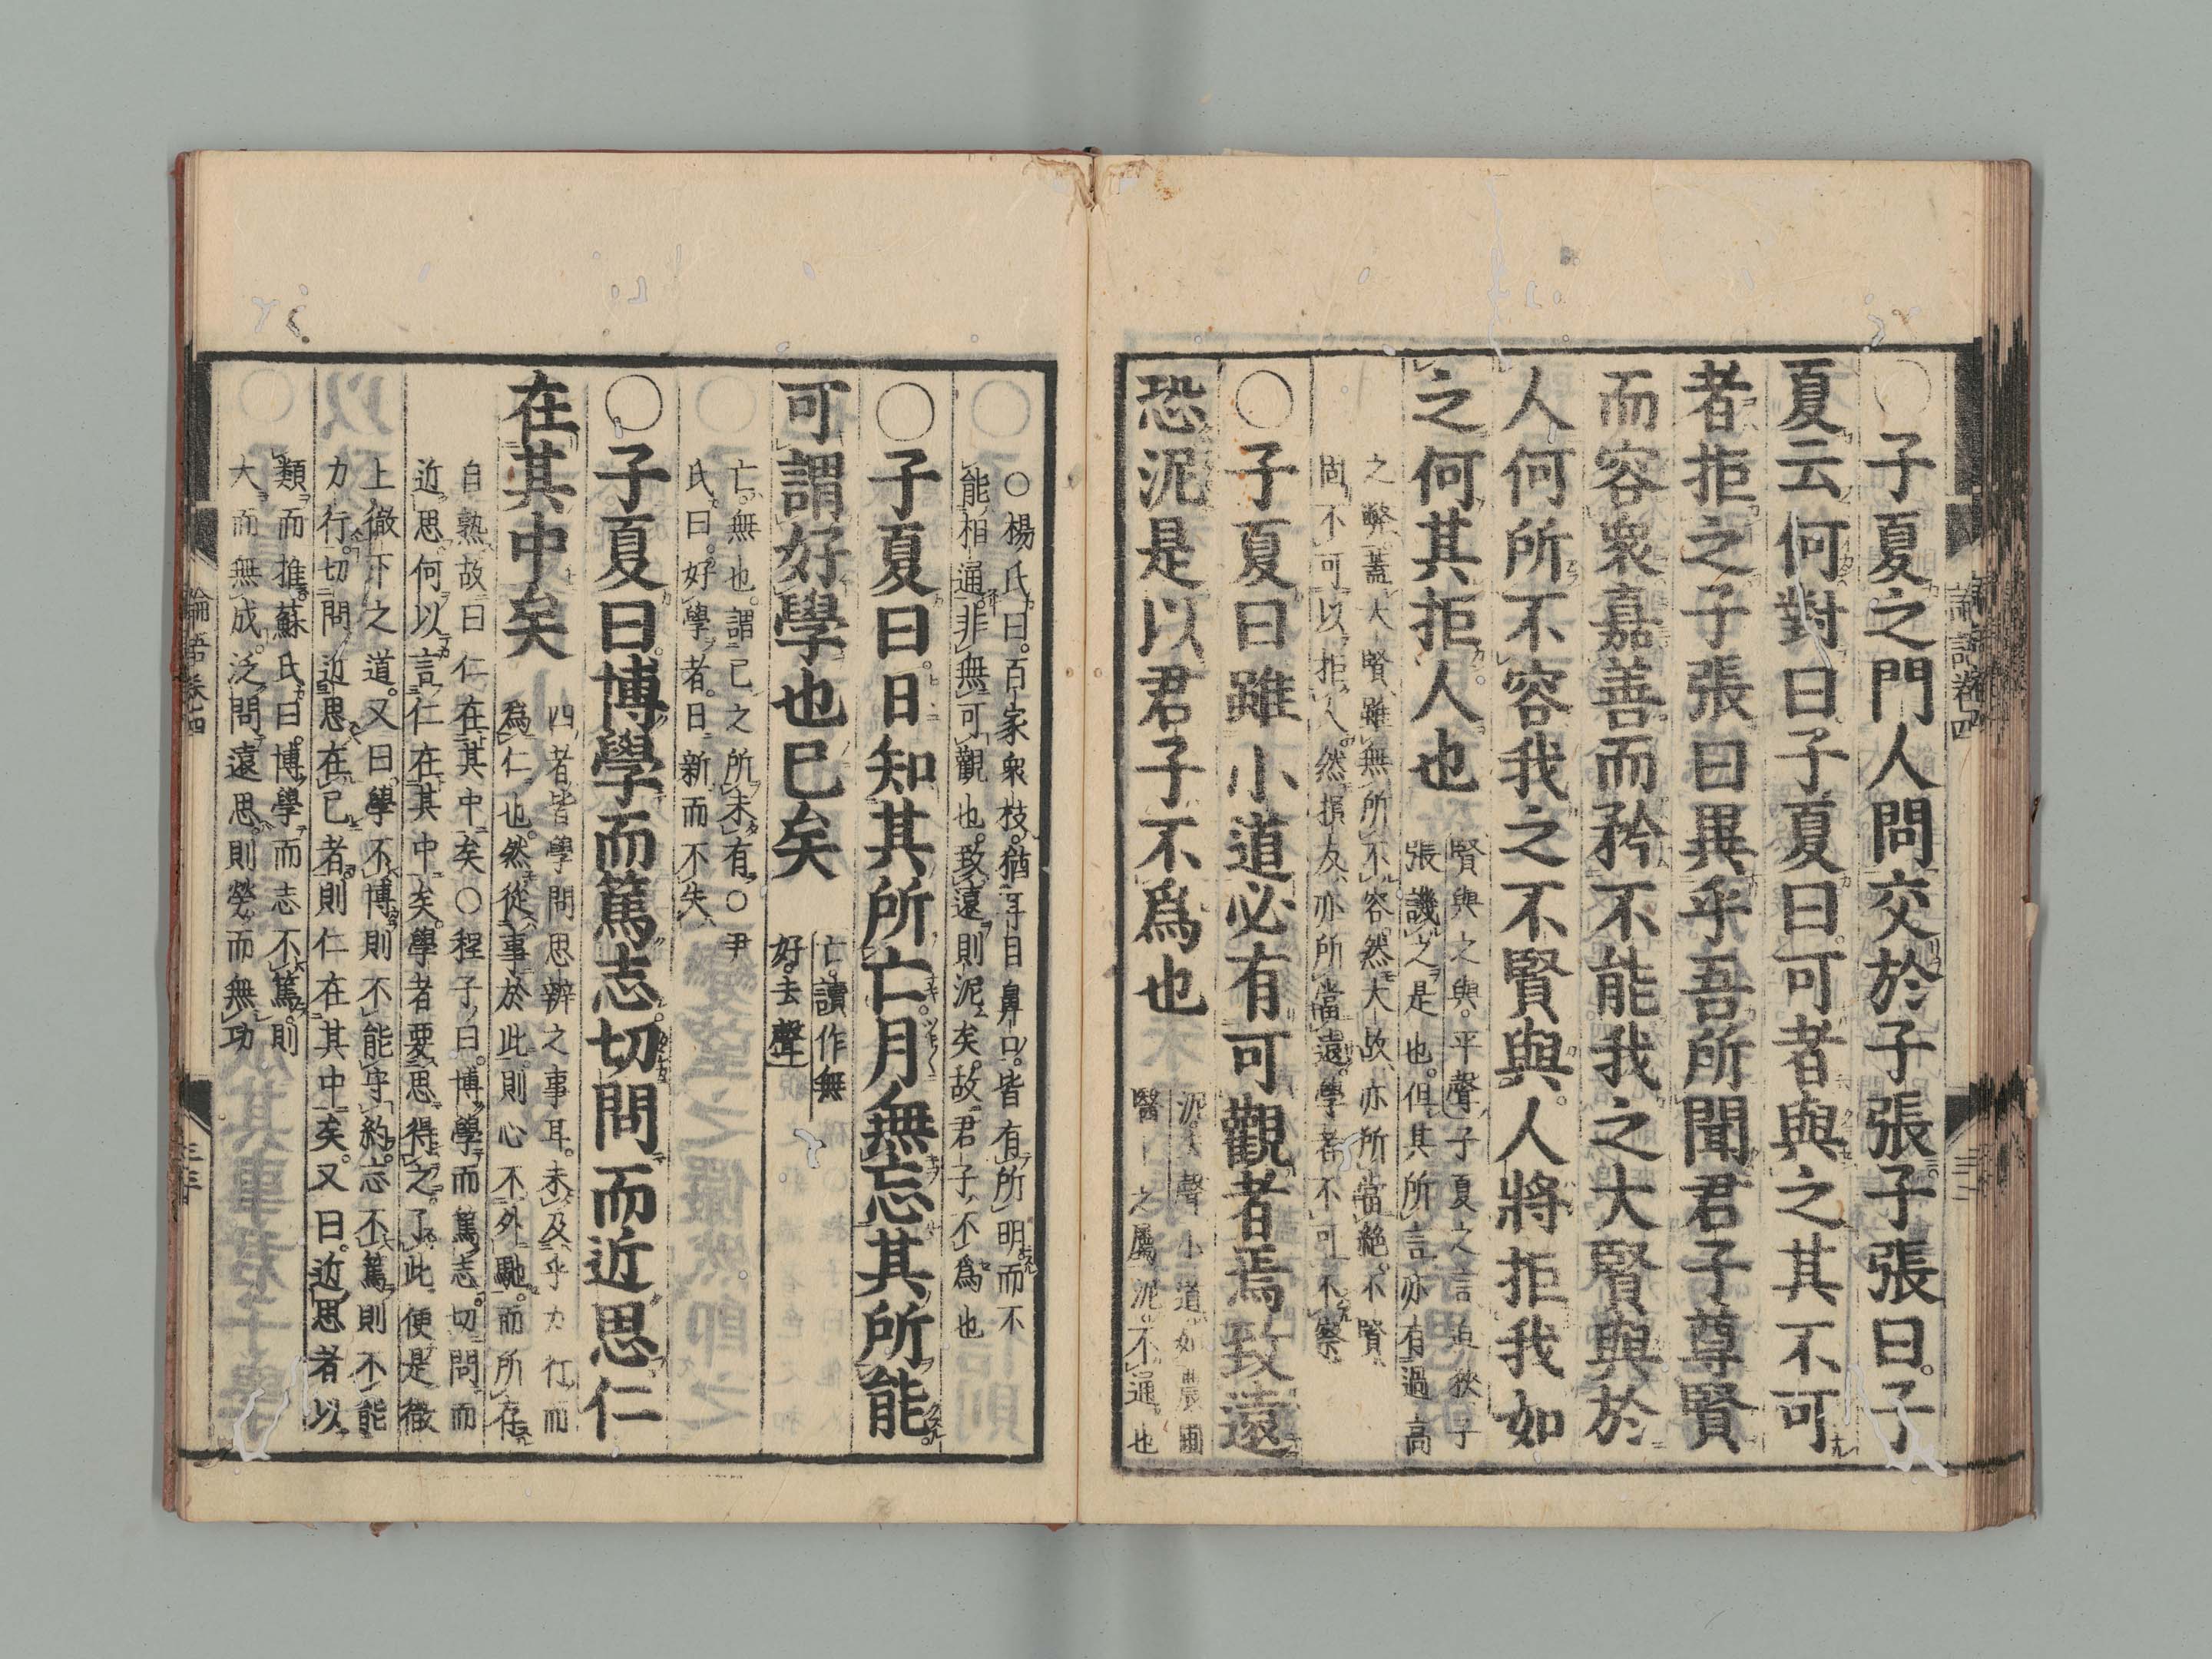 論語卷四
○子夏之門人問交於子張子張曰子
夏云何對曰子夏曰可者與之其不可
者拒之子張曰異乎吾所聞君子尊賢
而容衆嘉善而矜不能我之大賢與於
人何所不容我之不賢與人將拒我如
之何其拒人也
賢與之與平聲子夏之言迫狹子
張譏之是也但其所言亦有過高
之弊蓋大賢雖無所不容然大故亦所當絶不賢
固不可以拒人然損友亦所當遠學者不可不察
○子夏曰雖小道必有可觀者焉致遠
恐泥是以君子不爲也
泥去聲小道如農圃
醫卜之屬泥不通也
○楊氏曰百家衆枝猶耳目鼻口皆有所明而不
能相通非無可觀也致遠則泥矣故君子不爲也
○子夏曰日知其所亡月無忘其所能
可謂好學也已矣
亡讀作無
好去聲
亡無也謂己之所未有○尹
氏曰好學者日新而不失
○子夏曰博學而篤志切問而近思仁
在其中矣
四者皆學問思辨之事耳未及乎力行而
爲仁也然從事於此則心不外馳而所存
自熟故曰仁在其中矣○程子曰博學而篤志切問而
近思何以言仁在其中矣學者要思得之了此便是徹
上徹下之道又曰學不博則不能守約志不篤則不能
力行切問近思在己者則仁在其中矣又曰近思者以
類而推蘇氏曰博學而志不篤則
大而無成泛問遠思則勞而無功
論語卷四